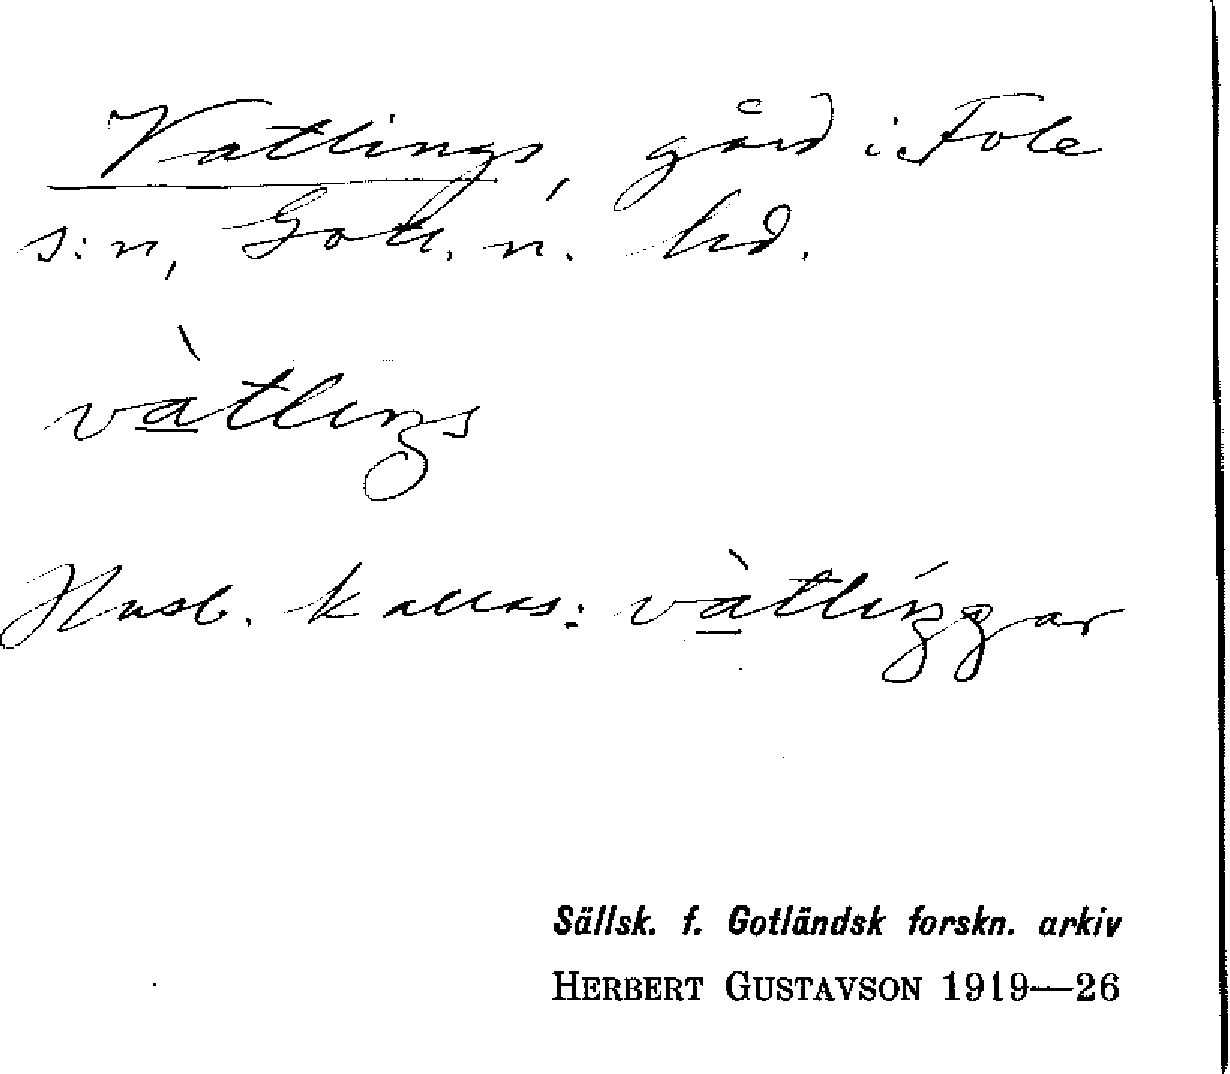 Vatlings, gård i Fole
s:n, Gotl. n. hd.
và̱tliŋs
Husb. kallas: và̱tlíŋgar
Sällsk. f. Gotländsk forskn. arkiv
HERBERT GUSTAVSON 1919—26